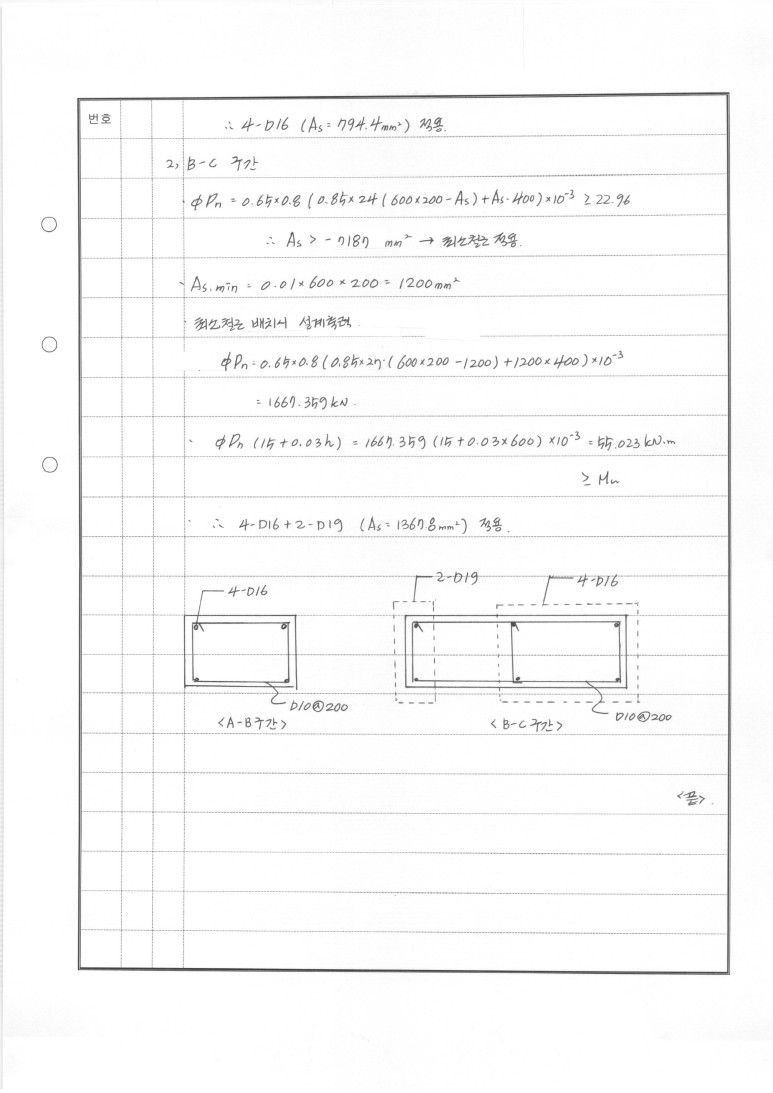 번호
∴ 4-D16 (As = 794.4mm²) 적용.
2) B-C 구간
· ϕPn = 0.65×0.8 (0.85×24 (600×200-As)+As·400)×10⁻³ ≥ 22.96
∴ As > -7187 mm² → 최소철근 적용.
· As.min = 0.01×600×200 = 1200mm²
· 최소철근 배치시 설계축력.
ϕPn = 0.65×0.8 (0.85×27·(600×200-1200)+1200×400)×10⁻³
= 1667.359 kN.
· ϕPn (15+0.03h) = 1667.359 (15+0.03×600)×10⁻³ = 55.023 kN·m
≥ Mu
· ∴ 4-D16+2-D19 (As = 1367.8mm²) 적용.
2-D19
4-D16
4-D16
D10@200
D10@200
<A-B구간>
<B-C구간>
<끝>.